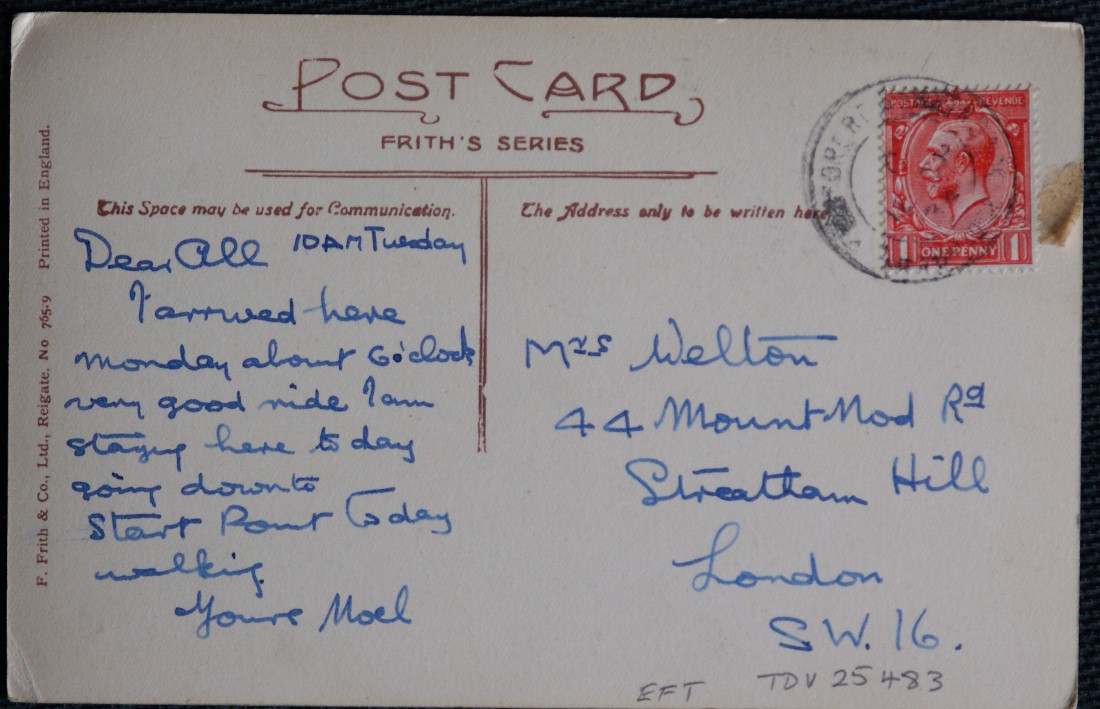 POST CARD
FRITH'S SERIES
This Space may be used for Communication.
The Address only to be written here
POSTAGE REVENUE
1 ONE PENNY 1
Dear All 10 AM Tuesday
I arrived here
Monday about 6 o'clock
very good ride I am
staying here to day
going down to
Start Point To day
walking
Yours Noel
Mrs Welton
44 Mount Nod Rd
Streatham Hill
London
S.W. 16.
EFT TDV 25483
F. Frith & Co., Ltd., Reigate. No 76519 Printed in England.